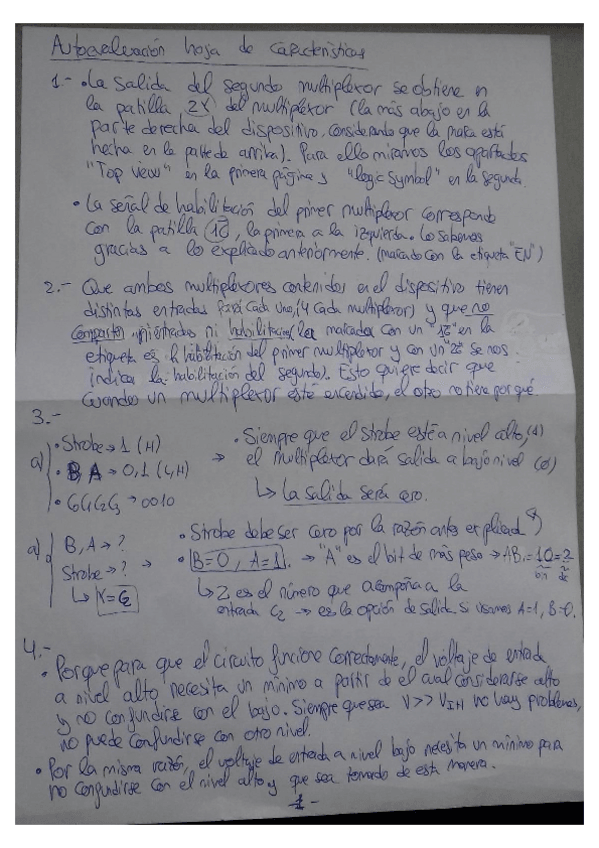 Autoevaluación hoja de características
1.- • La salida del segundo multiplexor se obtiene en
la patilla 2Y del multiplexor (la más abajo en la
parte derecha del dispositivo, considerando que la marca está
hecha en la parte de arriba). Para ello miramos los apartados
"Top view" en la primera página y "logic symbol" en la segunda.
• La señal de habilitación del primer multiplexor corresponde
con la patilla 1G, la primera a la izquierda. Lo sabemos
gracias a lo explicado anteriormente. (marcado con la etiqueta "EN")
2.- Que ambos multiplexores contenidos en el dispositivo tienen
distintas entradas para cada uno, (4 cada multiplexor) y que no
comparten ni entradas ni habilitación (la marcada con un "1G" en la
etiqueta es la habilitación del primer multiplexor y con un "2G" se nos
indica la habilitación del segundo). Esto quiere decir que
cuando un multiplexor esté encendido, el otro no tiene por qué.
3.-
a) • Strobe → 1 (H)
• B A → 0,1 (L,H)
• C0C1C2C3 → 0010
→ • Siempre que el Strobe esté a nivel alto, (1)
el multiplexor dará salida a bajo nivel (0)
↳ La salida será cero.
a) B, A → ?
Strobe → ? →
↳ Y = C2
• Strobe debe ser cero por la razón antes explicada
• B=0, A=1. → "A" es el bit de más peso → AB = 10 = 2
bin
↳ 2 es el número que acompaña a la
entrada C2 → es la opción de salida si usamos A=1, B=0.
4.-
• Porque para que el circuito funcione correctamente, el voltaje de entrada
a nivel alto necesita un mínimo a partir de el cual considerarse alto
y no confundirse con el bajo. Siempre que sea V >> VIH no hay problemas,
no puede confundirse con otro nivel.
• Por la misma razón, el voltaje de entrada a nivel bajo necesita un mínimo para
no confundirse con el nivel alto y que sea tomado de esta manera.
- 1 -